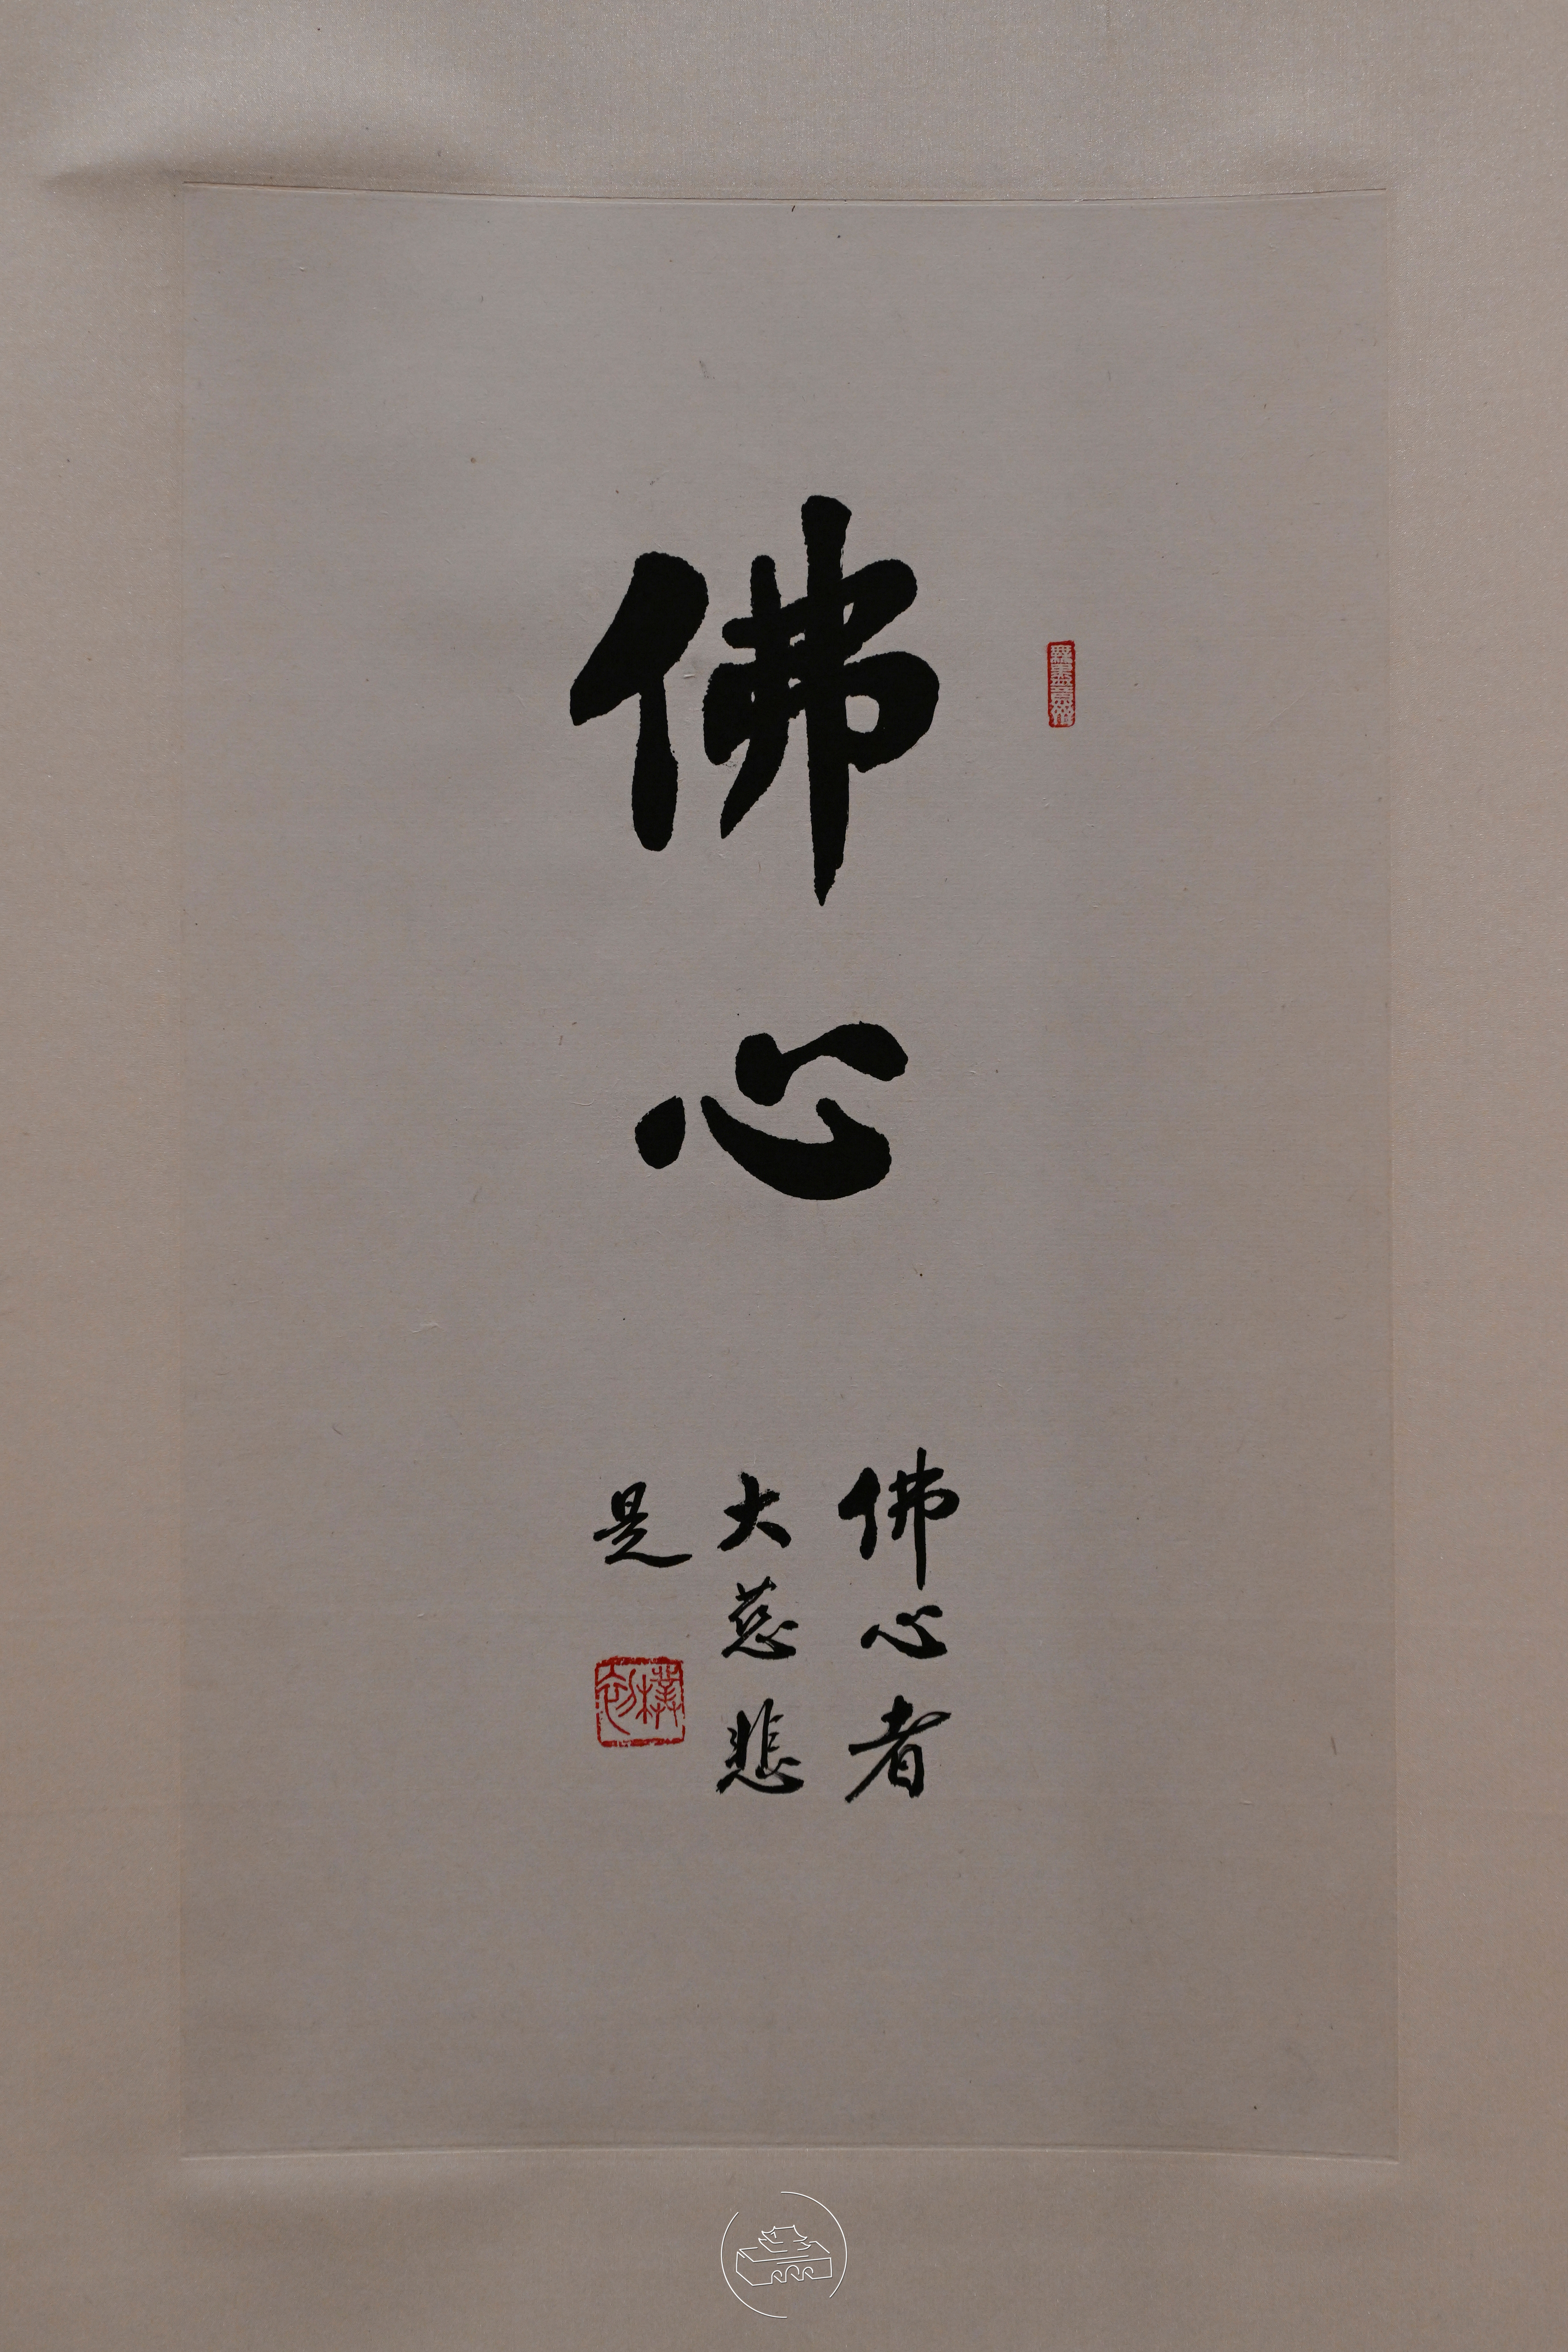 佛心
佛心者
大慈悲
是
朴初